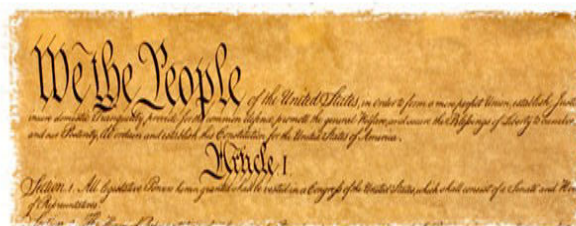 We the People of the United States, in order to form a more perfect Union, establish Justice
insure domestic Tranquility, provide for the common defence, promote the general Welfare, and secure the Blessings of Liberty to ourselves
and our Posterity, do ordain and establish this Constitution for the United States of America.
Article I
Section 1. All legislative Powers herein granted shall be vested in a Congress of the United States, which shall consist of a Senate and House
of Representatives.